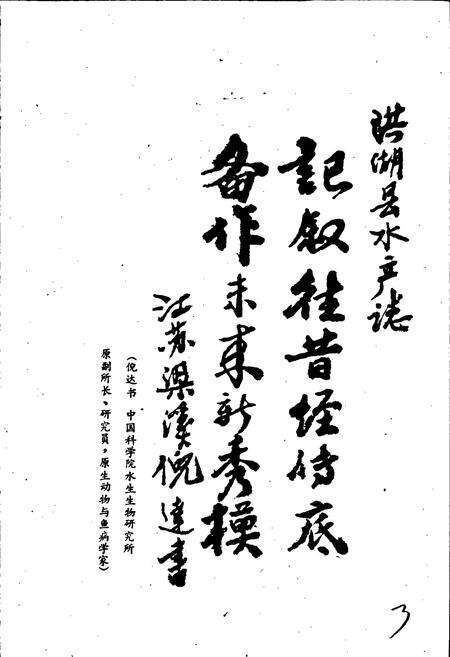 洪湖县水产志
记叙往昔经时底
备作未来新秀模
江苏梁溪倪达书
（倪达书 中国科学院水生生物研究所
原副所长、研究員，原生动物与鱼病学家）
3